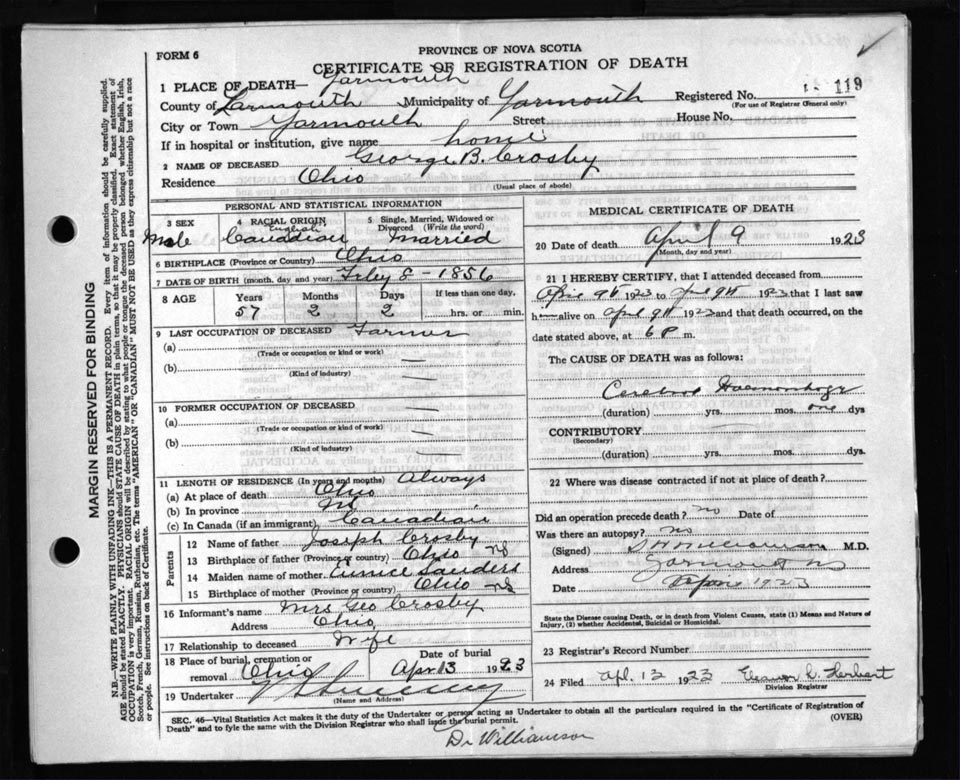 FORM 6
PROVINCE OF NOVA SCOTIA
CERTIFICATE OF REGISTRATION OF DEATH
1 PLACE OF DEATH— Yarmouth
County of Yarmouth Municipality of Yarmouth Registered No. 119
(For use of Registrar General only)
City or Town Yarmouth Street House No.
If in hospital or institution, give name home
2 NAME OF DECEASED George B. Crosby
Residence Ohio
(Usual place of abode)
PERSONAL AND STATISTICAL INFORMATION
3 SEX 4 RACIAL ORIGIN 5 Single, Married, Widowed or Divorced (Write the word)
English
Male Canadian Married
6 BIRTHPLACE (Province or Country) Ohio
7 DATE OF BIRTH (month, day and year) 8 - 1856
8 AGE Years Months Days If less than one day,
57 2 2 hrs. or min.
9 LAST OCCUPATION OF DECEASED Farmer
(a) —
(Trade or occupation or kind or work)
(b) —
(Kind of industry)
10 FORMER OCCUPATION OF DECEASED
(a) —
(Trade or occupation or kind or work)
(b) —
(Kind of industry)
11 LENGTH OF RESIDENCE (In years and months) Always
(a) At place of death Ohio
(b) In province
(c) In Canada (if an immigrant) Canadian
Parents
12 Name of father Joseph Crosby
13 Birthplace of father (Province or country) Ohio NS
14 Maiden name of mother Eunice Sanders
15 Birthplace of mother (Province or country) Ohio NS
16 Informant's name Mrs Geo Crosby
Address Ohio
17 Relationship to deceased Wife
18 Place of burial, cremation or removal Ohio Date of burial Apr 13 1923
19 Undertaker
(Name and Address)
MEDICAL CERTIFICATE OF DEATH
20 Date of death April 9 1923
(Month, day and year)
21 I HEREBY CERTIFY, that I attended deceased from
April 9th 1923 to April 9th 1923 that I last saw
him alive on April 9th 1923 and that death occurred, on the
date stated above, at 6 P m.
The CAUSE OF DEATH was as follows:
Cerebral Haemorrhage
(duration) yrs. mos. one dys
CONTRIBUTORY
(Secondary)
(duration) yrs. mos. dys.
22 Where was disease contracted if not at place of death?
Did an operation precede death? no Date of
Was there an autopsy? no
(Signed) Williamson M.D.
Address Yarmouth NS
Date 1923
State the Disease causing Death, or in death from Violent Causes, state (1) Means and Nature of
Injury, (2) whether Accidental, Suicidal or Homicidal.
23 Registrar's Record Number
24 Filed Apl. 13 1923 Eleanor C. Herbert
Division Registrar
SEC. 46—Vital Statistics Act makes it the duty of the Undertaker or person acting as Undertaker to obtain all the particulars required in the "Certificate of Registration of
Death" and to fyle the same with the Division Registrar who shall issue the burial permit.
(OVER)
Dr Williamson
MARGIN RESERVED FOR BINDING
N.B.—WRITE PLAINLY WITH UNFADING INK—THIS IS A PERMANENT RECORD. Every item of information should be carefully supplied.
AGE should be stated EXACTLY. PHYSICIANS should STATE CAUSE OF DEATH in plain terms, so that it may be properly classified. Exact statement of
OCCUPATION is very important. RACIAL ORIGIN will be described by stating to what people or tongue the deceased person belonged whether English, Irish,
Scotch, French, German, Russian, Ruthenian, etc. The terms "AMERICAN" or "CANADIAN" MUST NOT BE USED as they express citizenship but not a race
or people. See instructions on back of Certificate.